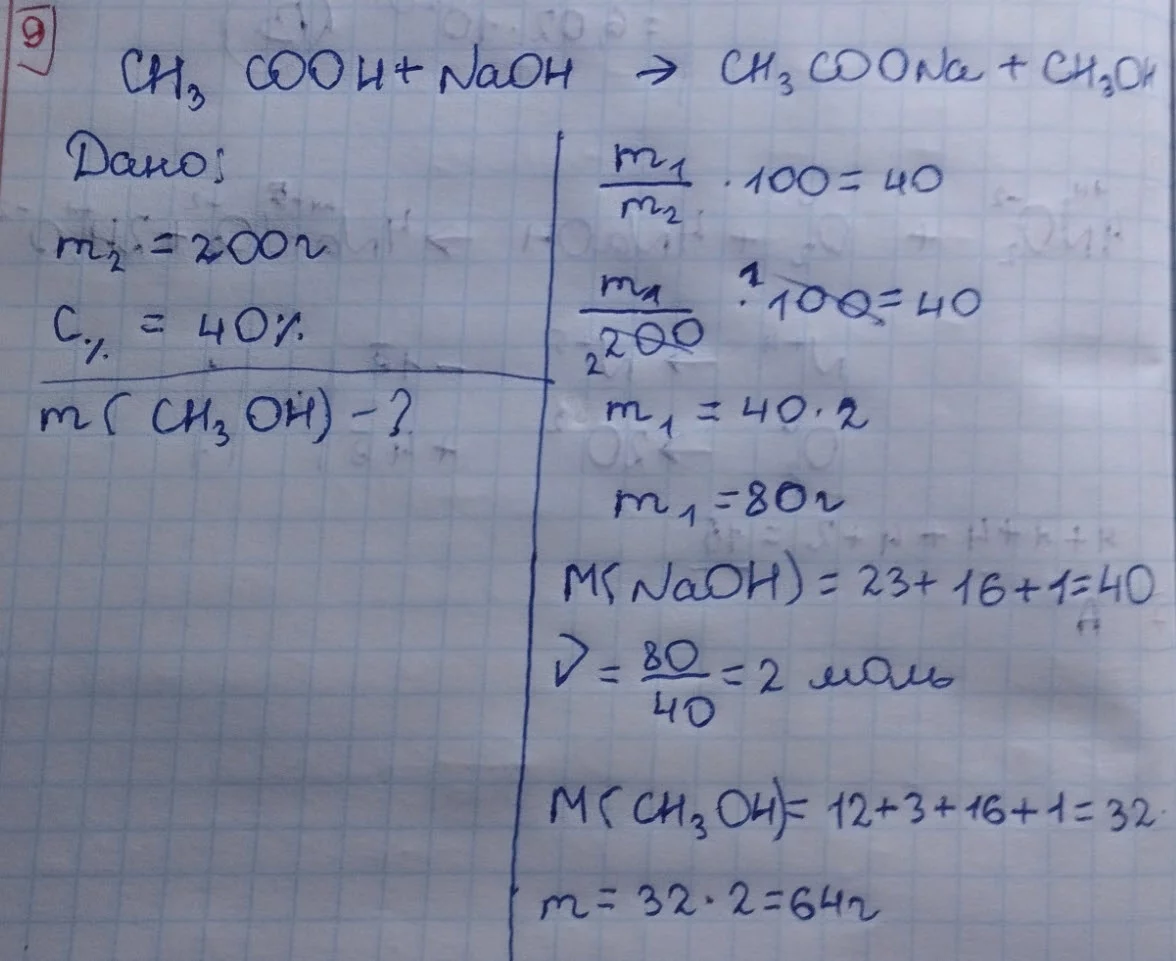 9
CH₃ COOH + NaOH → CH₃COONa + CH₃OH
Дано:
m₂ = 200г
C% = 40%
m(CH₃OH) - ?
m₁/m₂ · 100 = 40
m₁/200 · 100 = 40
2 1
m₁ = 40 · 2
m₁ = 80г
M(NaOH) = 23 + 16 + 1 = 40
ν = 80/40 = 2 моль
M(CH₃OH) = 12 + 3 + 16 + 1 = 32
m = 32 · 2 = 64г